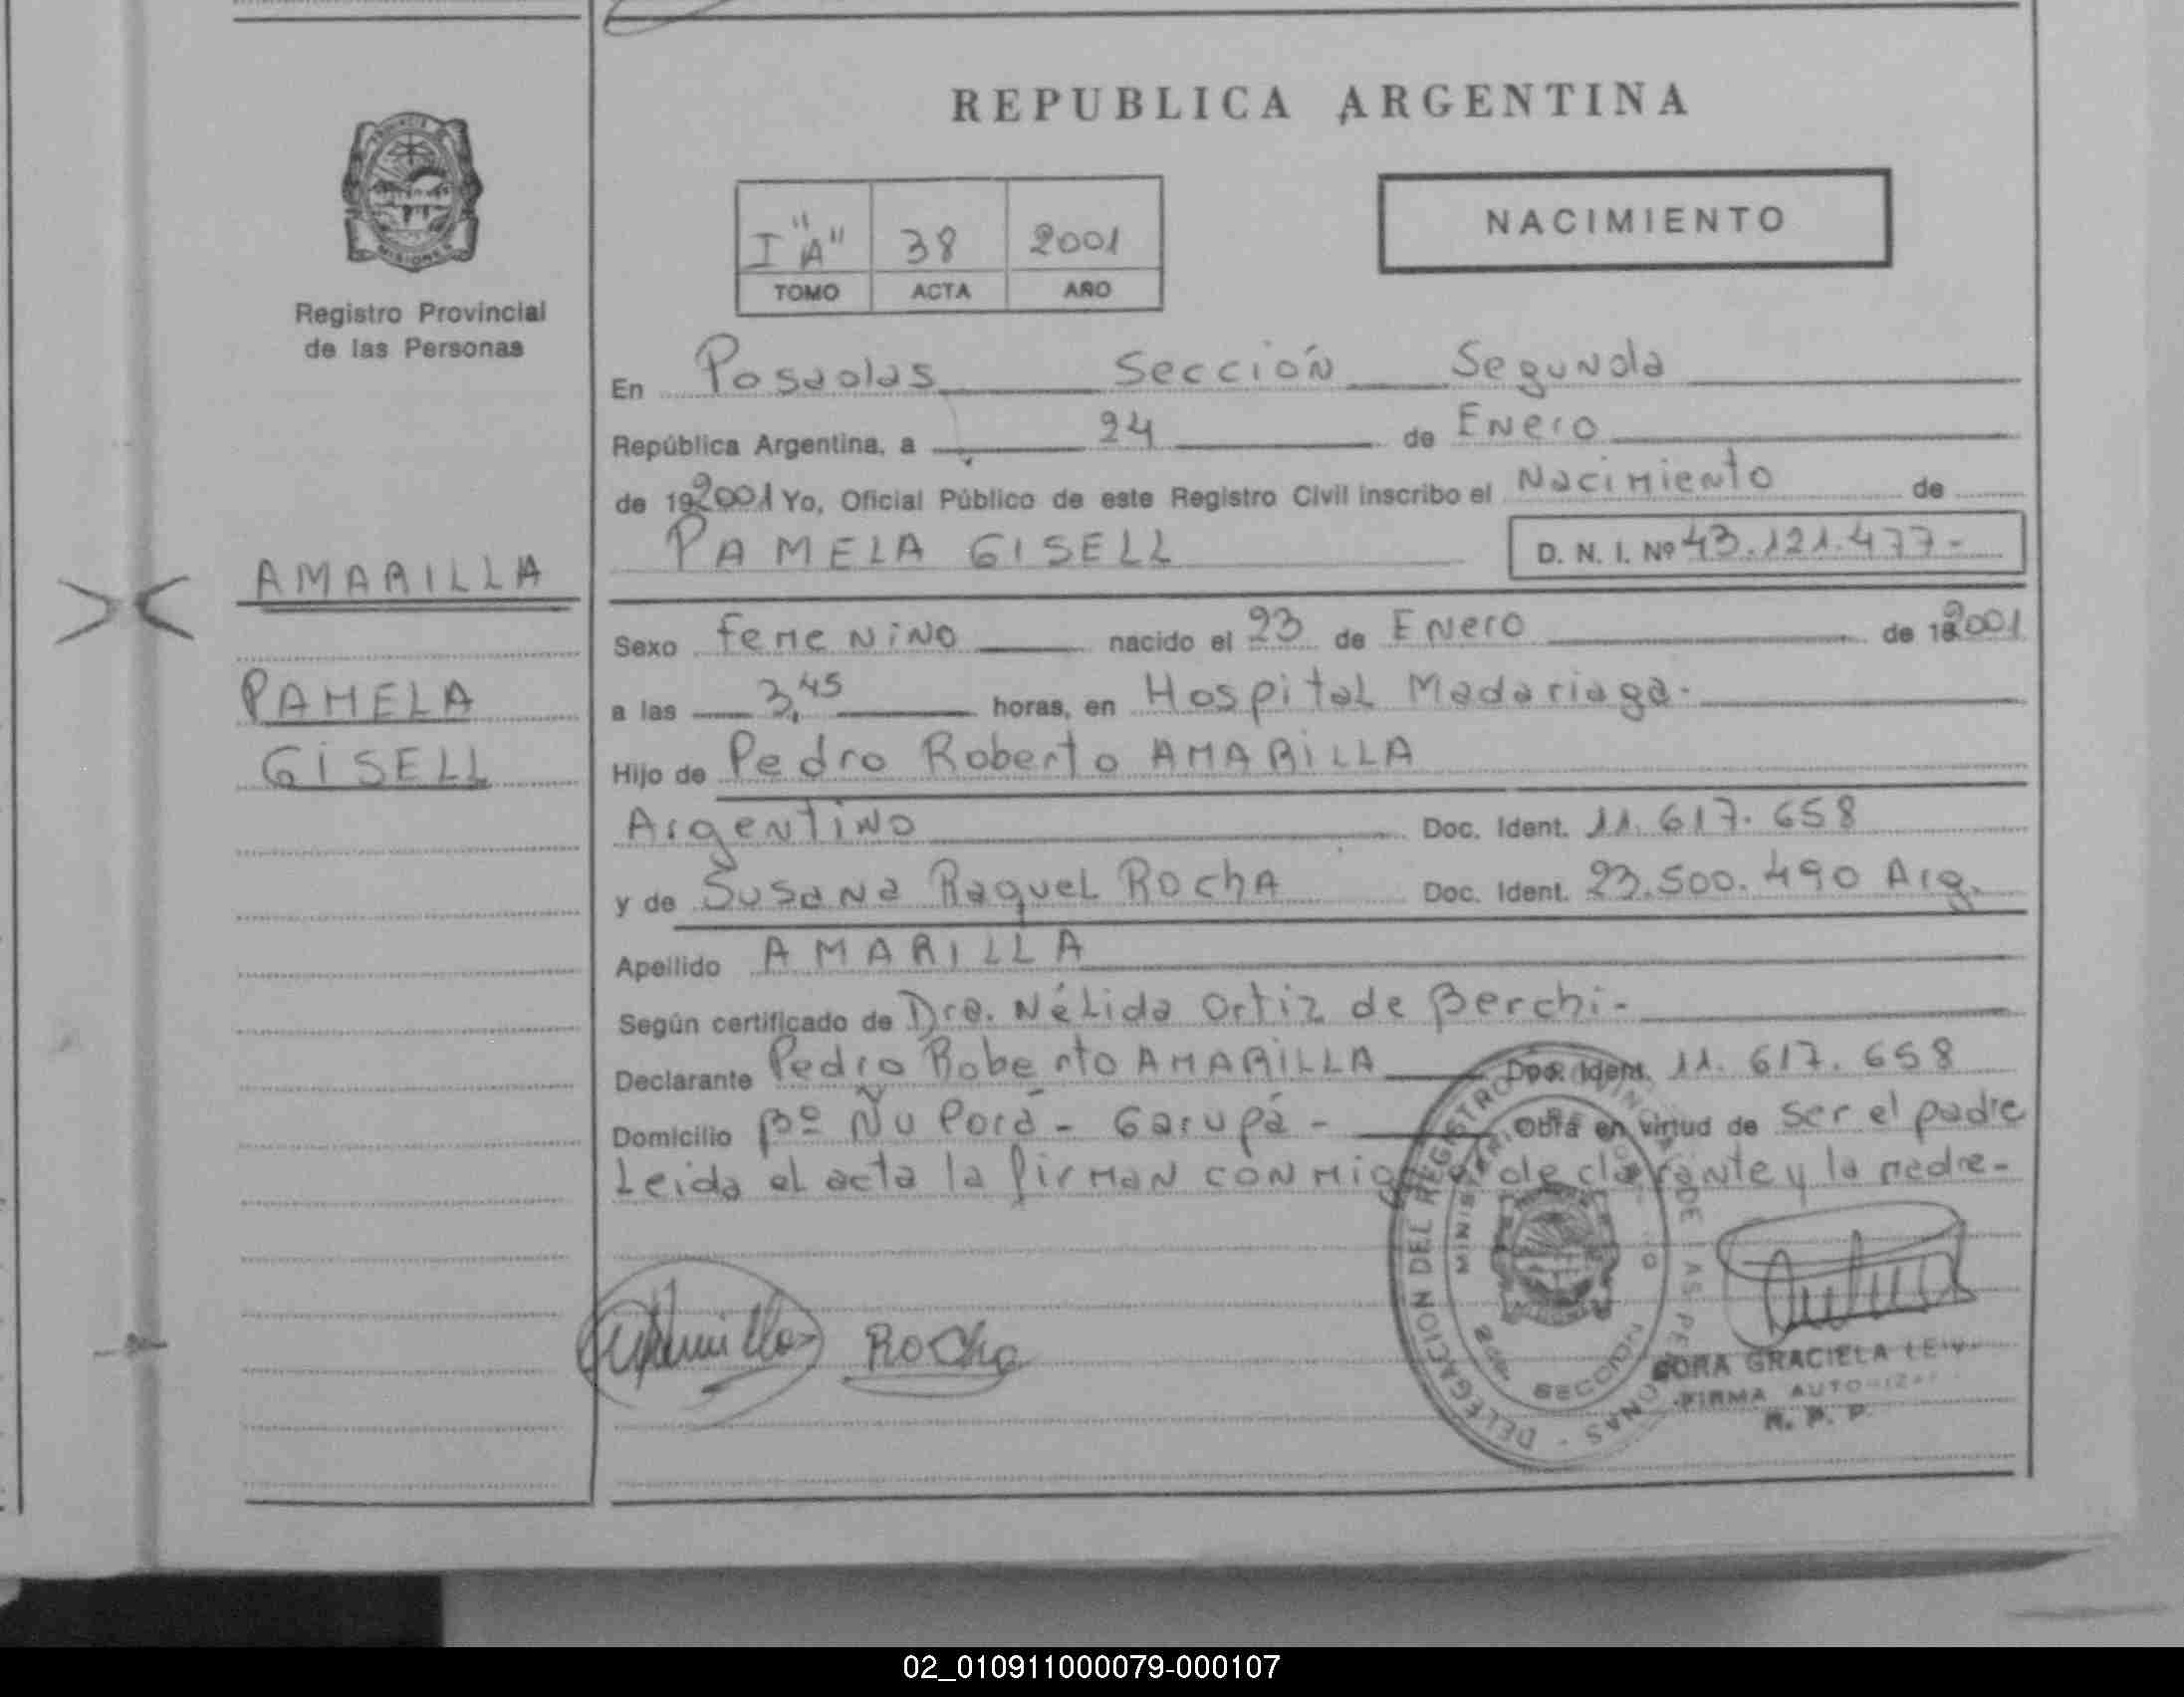 REPUBLICA ARGENTINA
PROVINCIA DE
MISIONES
Registro Provincial
de las Personas
I "A" 38 2001
TOMO ACTA AÑO
NACIMIENTO
En Posadas Sección Segunda
República Argentina, a 24 de Enero
de 192001 Yo, Oficial Público de este Registro Civil inscribo el Nacimiento de
PAMELA GISELL D. N. I. Nº 43.121.477-
AMARILLA
PAMELA
GISELL
Sexo femenino nacido el 23 de Enero de 192001
a las 3,45 horas, en Hospital Madariaga.
Hijo de Pedro Roberto AMARILLA
Argentino Doc. Ident. 11.617.658
y de Susana Raquel ROchA Doc. Ident. 23.500.490 Arg.
Apellido AMARILLA
Según certificado de Dra. Nélida Ortiz de Berchi-
Declarante Pedro Roberto AMARILLA Doc. Ident. 11.617.658
Domicilio Bº Ñu Porá - Garupá - Obra en virtud de ser el padre
Leida el acta la firman conmigo el declarante y la madre-
Rocha
DELEGACION DEL REGISTRO PROVINCIAL DE LAS PERSONAS -
SECCION
GRACIELA
FIRMA AUTORIZADA
R. P. P.
02_010911000079-000107